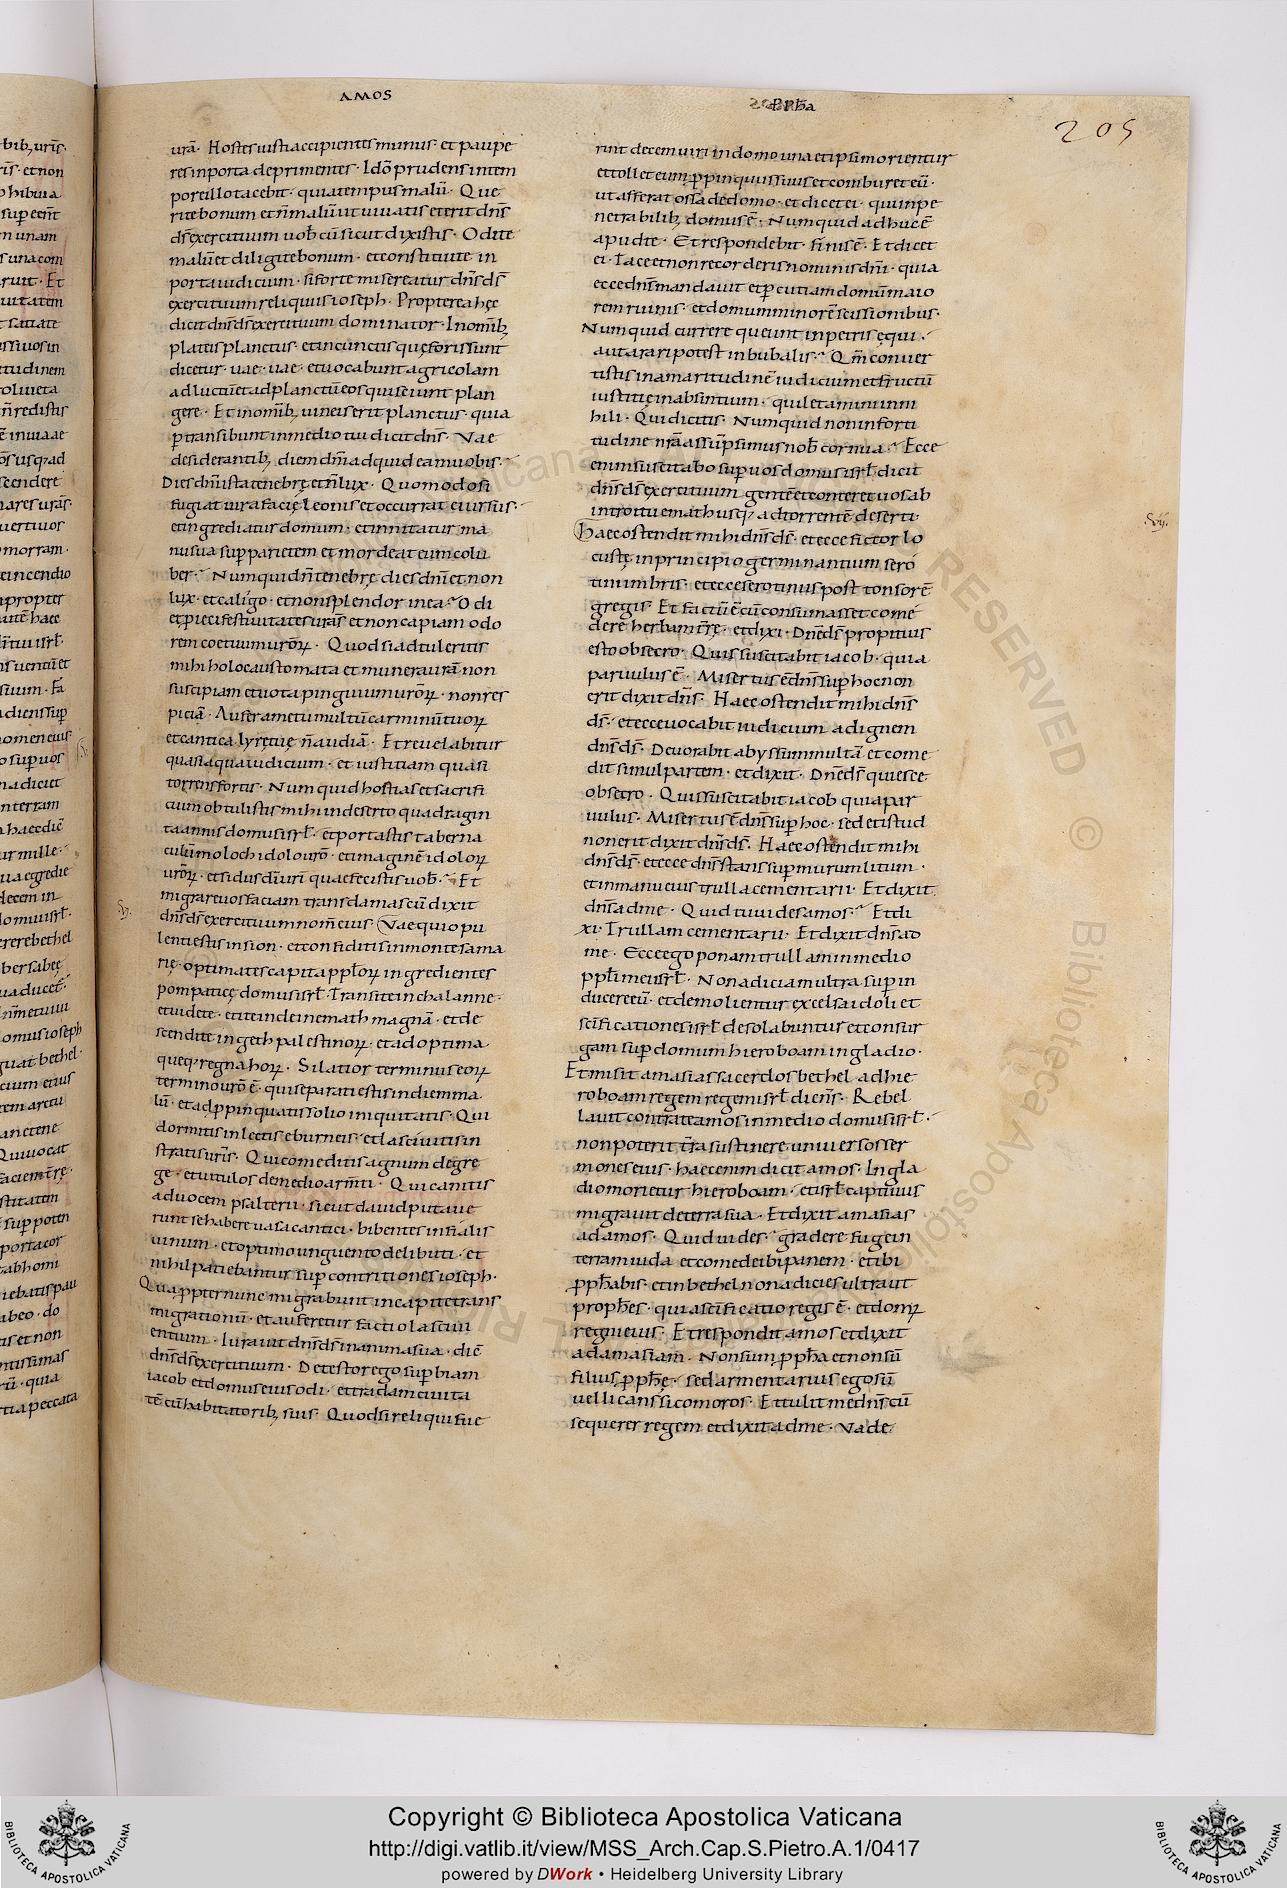 AMOS
PPħa
205
urā· Hostes iusti accipientes munus· et paupe
res inporta deprimentes· Idō prudens intem
pore illo tacebit· quia tempus malū· Que
rite bonum et n̄ malū ut uiuatis et erit dn̄s
ds̄ exercituum uob̄ cū sicut dixistis· Odite
malū et diligite bonum· et constituite in
porta iudicium· si forte misereatur dn̄s ds̄
exercituum reliquiis ioseph· Propterea hęc
dicit dn̄s ds̄ exercituum dominator· In om̄ib;
plateis planctus· et in cunctis quę foris sunt
dicetur uae· uae· et uocabunt agricolam
ad luctū et ad planctū eos qui sciunt plan
gere· Et in om̄ib; uineis erit planctus· quia
ꝑtransibunt in medio tui dicit dn̄s· Vae
desiderantib; diem dn̄i ad quid eam uobis·
Dies dn̄i ista tenebrę et n̄ lux· Quomodo si
fugiat uir a facię leonis et occurrat ei ursus·
et ingrediatur domum· et innitatur ma
nu sua suꝑ parietem et mordeat eum colu
ber· Numquid n̄ tenebrę dies dn̄i et non
lux· et caligo· et non splendor in ea· Odi
et ꝓieci festiuitates urās et non capiam odo
rem coetuum urōꝝ· Quod si adtuleritis
mihi holocaustomata et munera urā non
suscipiam et uota pinguium urōꝝ· non res
piciā· Aufer a me tumultū carminū tuoꝝ
et cantica lyrę tuę n̄ audiā· Et reuelabitur
quasi aqua iudicium· et iustitiam quasi
torrens fortis· Numquid hostias et sacrifi
cium obtulistis mihi in deserto quadragin
ta annis domus isrł· et portastis taberna
culū moloch idolo urō· et imaginē idoloꝝ
urōꝝ· et sidus dī uri quae fecistis uob̄· Et
migrare uos faciam trans damascū dixit
dn̄s ds̄ exercituum nom̄ eius· Vae qui opu
lenti estis in sion· et confiditis in monte sama
rię· optimates capita ppłoꝝ ingredientes
pompaticę domus isrł· Transite in chalanne·
et uidete· et ite inde in emath magnā· et de
scendite in geth palestinoꝝ· et ad optima
queq; regna hoꝝ· Si latior terminus eoꝝ
termino urō ē· qui separati estis in diem ma
lū· et adꝓpinquatis solio iniquitatis· Qui
dormitis in lectis eburneis· et lasciuitis in
stratis uris̄· Qui comeditis agnum de gre
ge· et uitulos de medio arm̄ti· Qui canitis
ad uocem psalterii· sicut dauid putaue
runt se habere uasa cantici· bibentes in fialis
uinum· et optimo unguento delibuti· et
nihil patiebantur suꝑ contritiones ioseph·
Quaꝓpter nunc migrabunt in capite trans
migrationū· et auferetur factio lasciui
entium· Iurauit dn̄s ds̄ in anima sua· diē
dn̄s ds̄ exercituum· Detestor ego suꝑbiam
iacob et domus eius odi· et tradam ciuita
tē cū habitatorib; suis· Quod si reliqui fue
rint decem uiri in domo una et ipsi morientur
et tollet eum ꝓpinquus suus et comburet eū·
ut afferat ossa de domo· et dicet ei· qui in pe
netrabilib; domus ē· Numquid adhuc ē
apud te· Et respondebit· finis ē· Et dicet
ei· Tace et non recorderis nominis dn̄i· quia
ecce dn̄s mandauit et ꝑcutiam domū maio
rem ruinis· et domum minorē scissionibus·
Numquid currere queunt in petris ęqui·
aut arari potest in bubalis· Qm̄ conuer
tistis in amaritudinē iudicium et fructū
iustitię in absintium· qui letamini in ni
hili· Qui dicitis· Numquid non in forti
tudine nrā assūpsimus nob̄ cornua· Ecce
enim suscitabo suꝑ uos domus isrł dicit
dn̄s ds̄ exercituum gentē et conteret uos ab
introitu emath usq; ad torrentē deserti·
Haec ostendit mihi dn̄s ds̄· et ecce fictor lo
custę in principio germinantium sero
tini imbris· et ecce serotinus post tonsorē
gregis· Et factū ē cū consumasset come
dere herbam tr̄rę· et dixi· Dn̄e ds̄ propitius
esto obsecro· Quis suscitabit iacob· quia
paruulus ē· Misertus ē dn̄s suꝑ hoc non
erit dixit dn̄s· Haec ostendit mihi dn̄s
ds̄· et ecce uocabit iudicium ad ignem
dn̄s ds̄· Deuorabit abyssum multā et come
dit simul partem· et dixit· Dn̄e ds̄ quiesce·
obsecro· Quis suscitabit iacob quia par
uulus· Misertus ē dn̄s suꝑ hoc· sed et istud
non erit dixit dn̄s ds̄· Haec ostendit mihi
dn̄s ds̄· et ecce dn̄s stans suꝑ murum litum·
et in manu eius trulla cementarii· Et dixit
dn̄s ad me· Quid tu uides amos· Et di
xi· Trullam cementarii· Et dixit dn̄s ad
me· Ecce ego ponam trullam in medio
ppłi mei isrł· Non adiciam ultra suꝑin
ducere eū· et demolientur excelsa idoli et
sc̄ificationes isrł desolabuntur et consur
gam suꝑ domum hieroboam in gladio·
Et misit amasias sacerdos bethel ad hie
roboam regem regem isrł dicens̄· Rebel
lauit contra te amos in medio domus isrł·
non poterit tr̄ra sustinere uniuersos ser
mones eius· haec enim dicit amos· In gla
dio morietur hieroboam· et isrł captiuus
migrauit de terra sua· Et dixit amasias
ad amos· Qui uides· gradere fuge in
terram iuda et comede ibi panem· et ibi
ꝓpħabis· et in bethel non adicies ultra ut
propħes· quia sc̄ificatio regis ē· et dom;
regni eius· Et respondit amos et dixit
ad amasiam· Non sum ꝓpħa et non sū
filius ꝓpħę· sed armentarius ego sū
uellicans sicomoros· Et tulit me dn̄s cū
sequerer regem et dixit ad me· Vade
·VI·
·VII·
Copyright © Biblioteca Apostolica Vaticana
http://digi.vatlib.it/view/MSS_Arch.Cap.S.Pietro.A.1/0417
powered by DWork • Heidelberg University Library
BIBLIOTECA APOSTOLICA VATICANA
BIBLIOTECA APOSTOLICA VATICANA